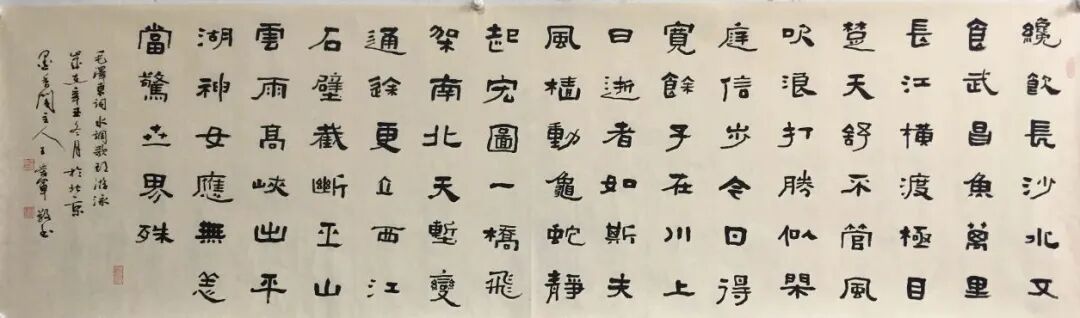 纔飲長沙水又
食武昌魚萬里
長江橫渡極目
楚天舒不管風
吹浪打勝似閑
庭信步今日得
寬餘子在川上
曰逝者如斯夫
風檣動龜蛇靜
起宏圖一橋飛
架南北天塹變
通途更立西江
石壁截斷巫山
雲雨高峽出平
湖神女應無恙
當驚世界殊
毛澤東詞水調歌頭游泳
歲在辛丑冬月於北京
墨香閣主人王軍